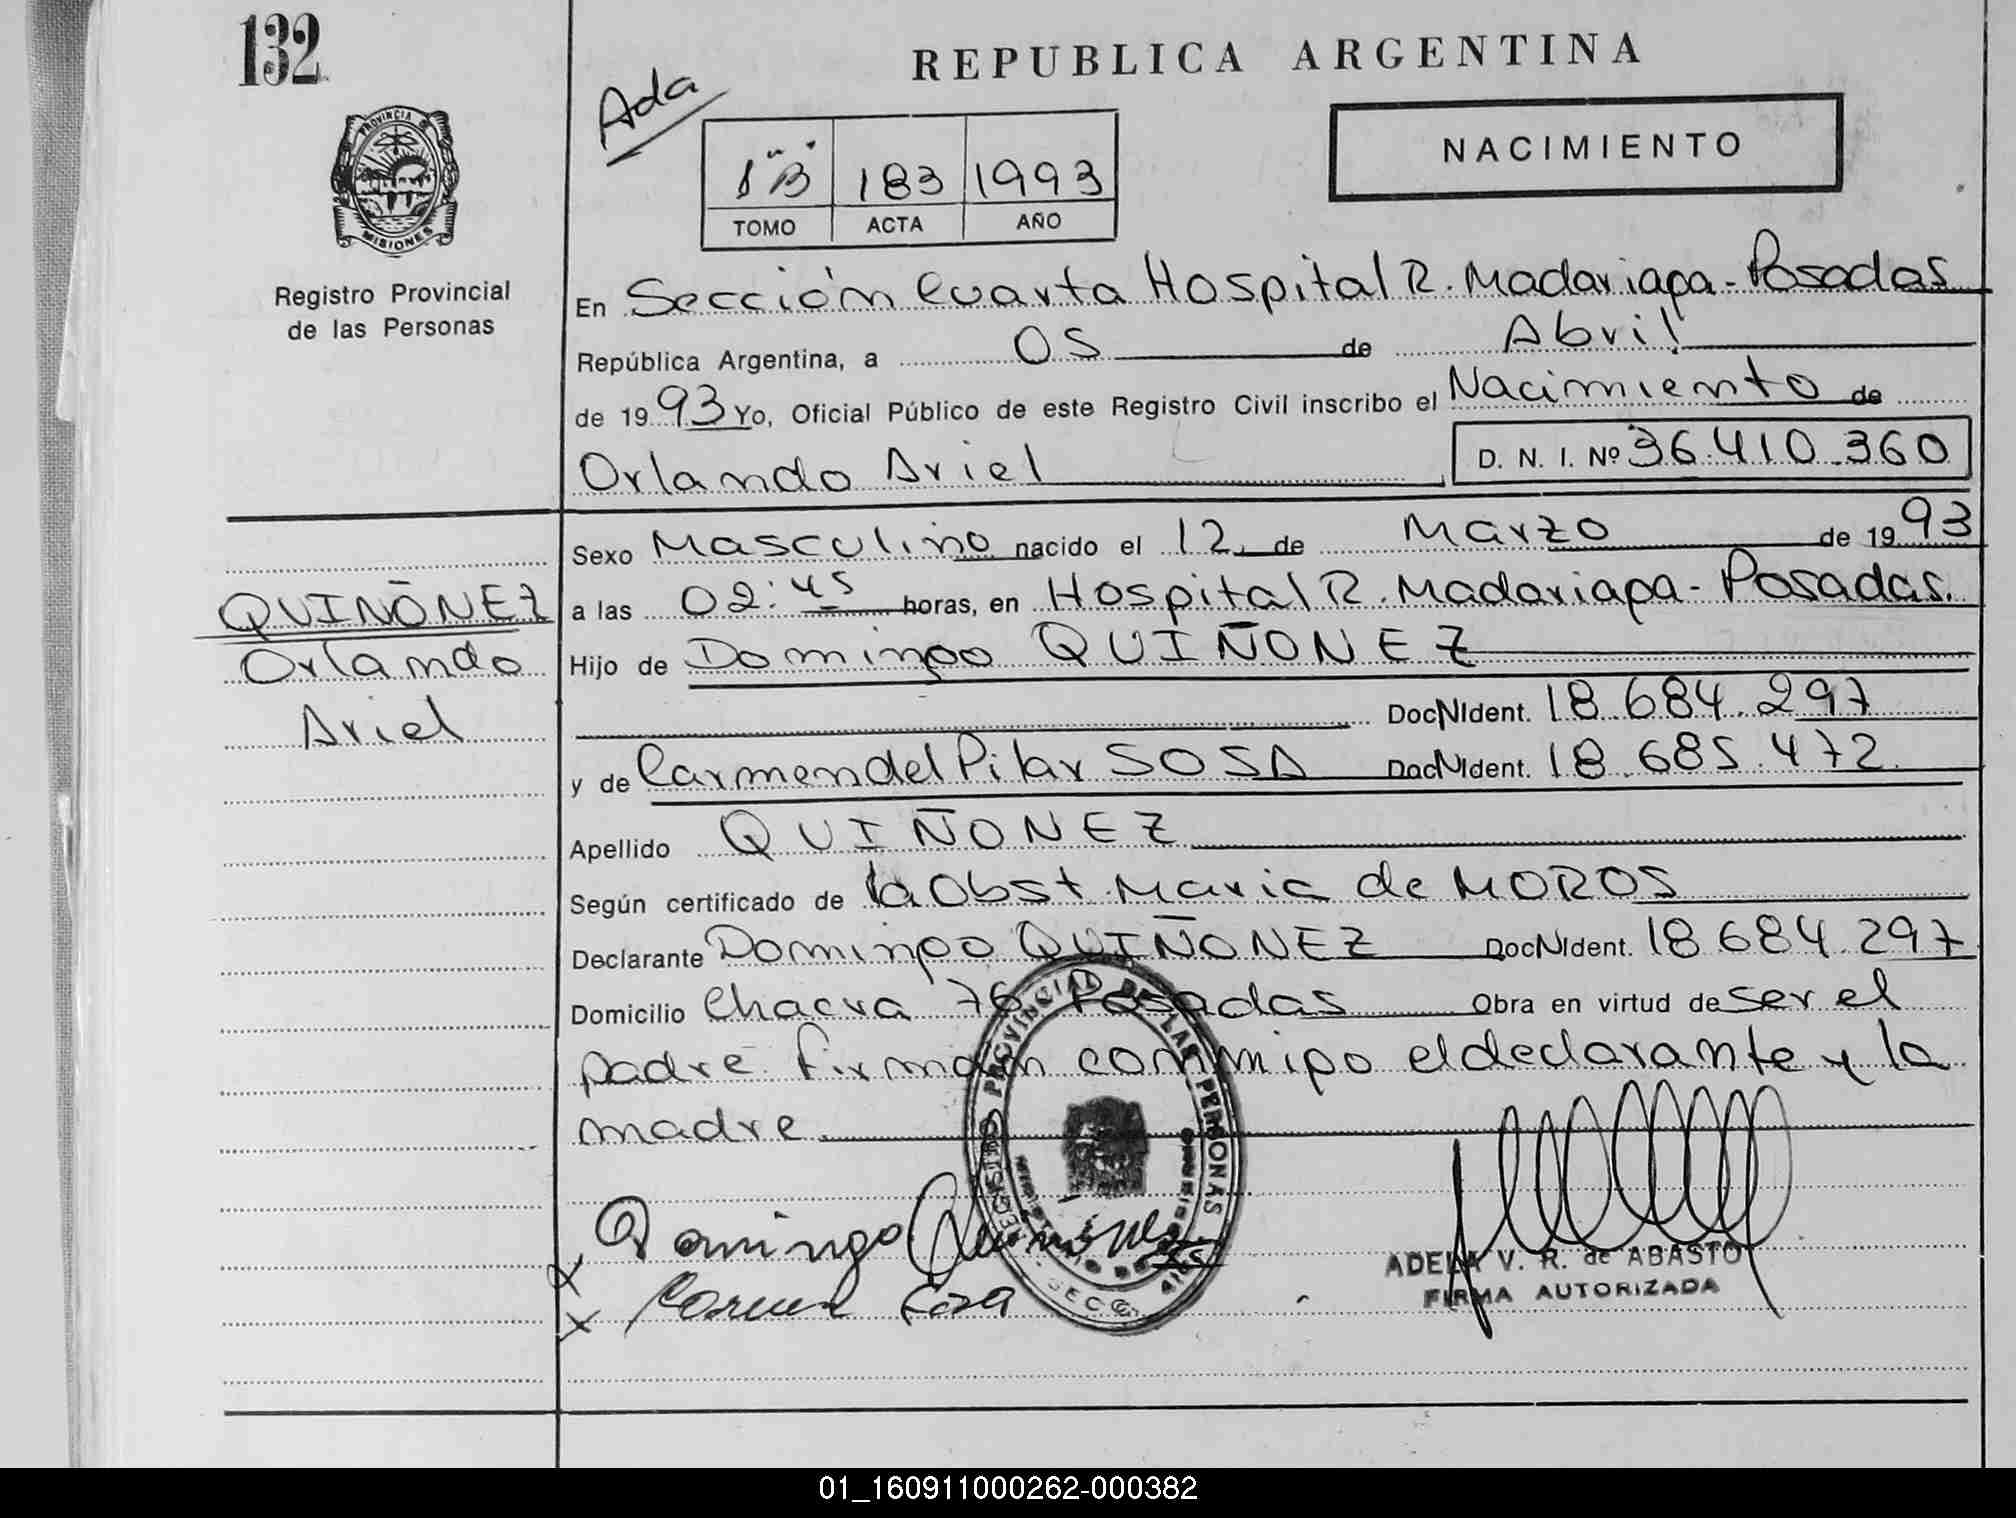 132
REPUBLICA ARGENTINA
Ada
NACIMIENTO
1 "B" 183 1993
TOMO ACTA AÑO
PROVINCIA DE
MISIONES
Registro Provincial
de las Personas
En Sección Cuarta Hospital R. Madariaga - Posadas
República Argentina, a 05 de Abril
de 1993 Yo, Oficial Público de este Registro Civil inscribo el Nacimiento de
Orlando Ariel D. N. I. Nº 36.410.360
Sexo Masculino nacido el 12 de Marzo de 1993
QUIÑONEZ
Orlando
Ariel
a las 02:45 horas, en Hospital R. Madariaga - Posadas.
Hijo de Domingo QUIÑONEZ
Doc N Ident. 18.684.297
y de Carmen del Pilar SOSA Doc N Ident. 18.685.472
Apellido QUIÑONEZ
Según certificado de la Obst. Maria de MOROS
Declarante Domingo QUIÑONEZ Doc N Ident. 18.684.297
Domicilio Chacra 76 Posadas Obra en virtud de ser el
padre. Firman conmigo el declarante y la
madre
REGISTRO PROVINCIAL DE LAS PERSONAS
Domingo Quiñonez
Carmen Sosa
ADELA V. R. de ABASTO
FIRMA AUTORIZADA
01_160911000262-000382